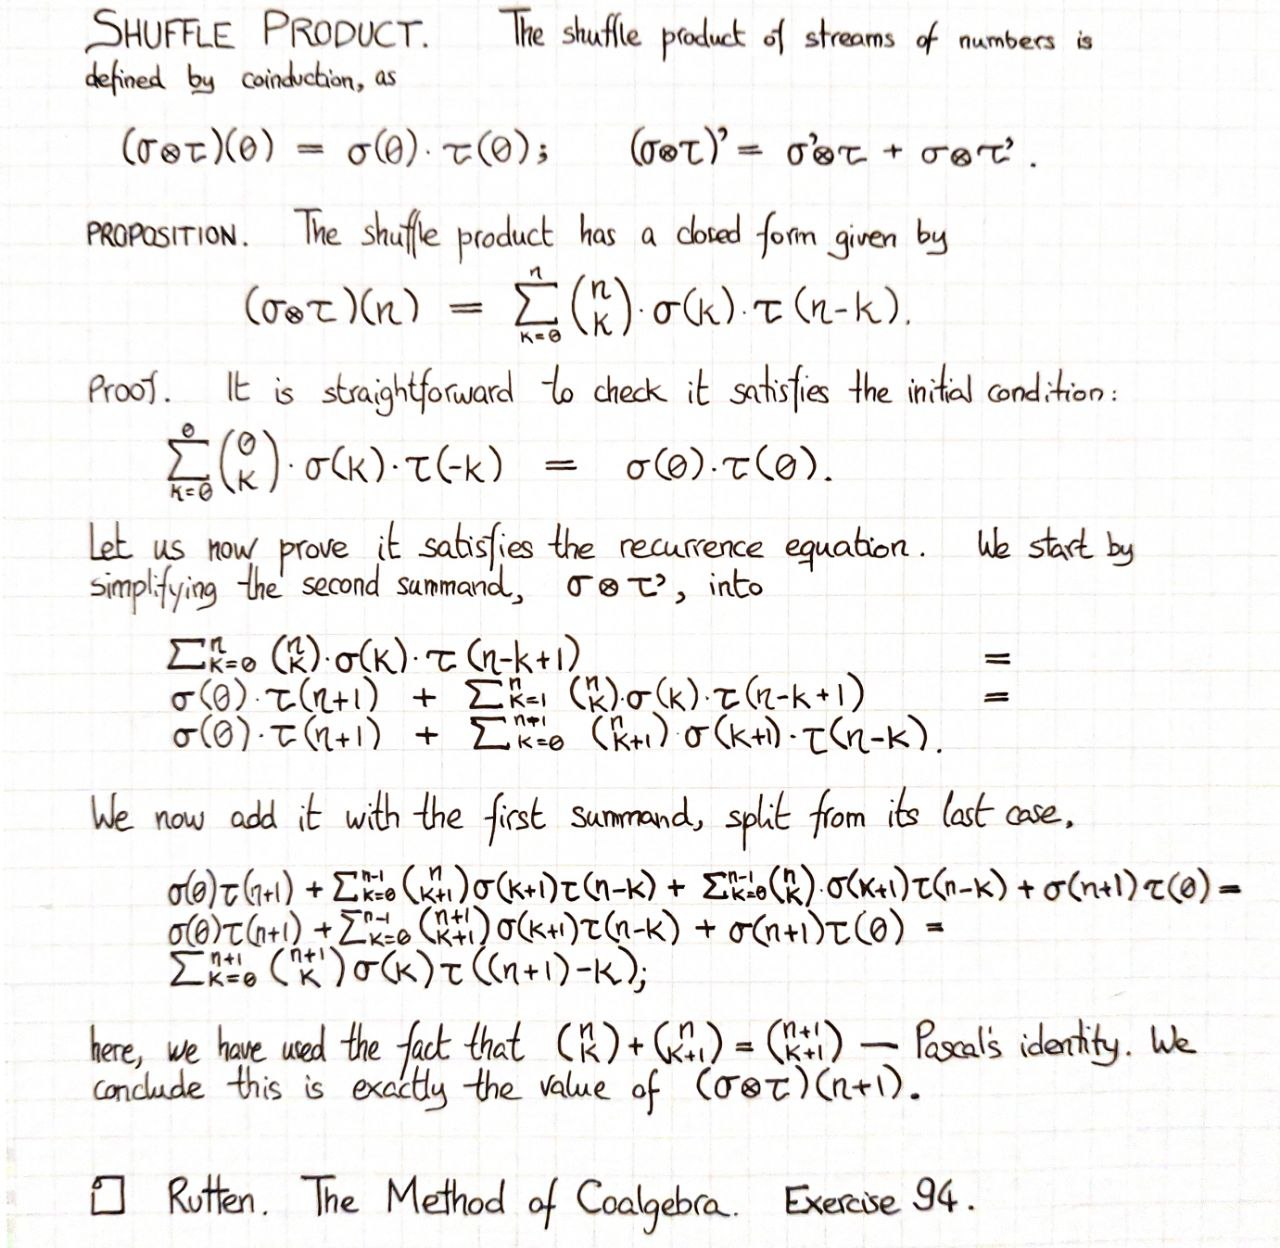 SHUFFLE PRODUCT. The shuffle product of streams of numbers is
defined by coinduction, as
(σ⊗τ)(0) = σ(0)·τ(0); (σ⊗τ)' = σ'⊗τ + σ⊗τ'.
PROPOSITION. The shuffle product has a closed form given by
(σ⊗τ)(n) = ∑_{k=0}^{n} (n k)·σ(k)·τ(n-k).
Proof. It is straightforward to check it satisfies the initial condition:
∑_{k=0}^{0} (0 k)·σ(k)·τ(-k) = σ(0)·τ(0).
Let us now prove it satisfies the recurrence equation. We start by
simplifying the second summand, σ⊗τ', into
∑_{k=0}^{n} (n k)·σ(k)·τ(n-k+1) =
σ(0)·τ(n+1) + ∑_{k=1}^{n} (n k)·σ(k)·τ(n-k+1) =
σ(0)·τ(n+1) + ∑_{k=0}^{n+1} (n k+1)·σ(k+1)·τ(n-k).
We now add it with the first summand, split from its last case,
σ(0)τ(n+1) + ∑_{k=0}^{n-1} (n k+1)σ(k+1)τ(n-k) + ∑_{k=0}^{n-1} (n k)·σ(k+1)τ(n-k) + σ(n+1)τ(0) =
σ(0)τ(n+1) + ∑_{k=0}^{n-1} (n+1 k+1)σ(k+1)τ(n-k) + σ(n+1)τ(0) =
∑_{k=0}^{n+1} (n+1 k)σ(k)τ((n+1)-k);
here, we have used the fact that (n k) + (n k+1) = (n+1 k+1) — Pascal's identity. We
conclude this is exactly the value of (σ⊗τ)(n+1).
□ Rutten. The Method of Coalgebra. Exercise 94.